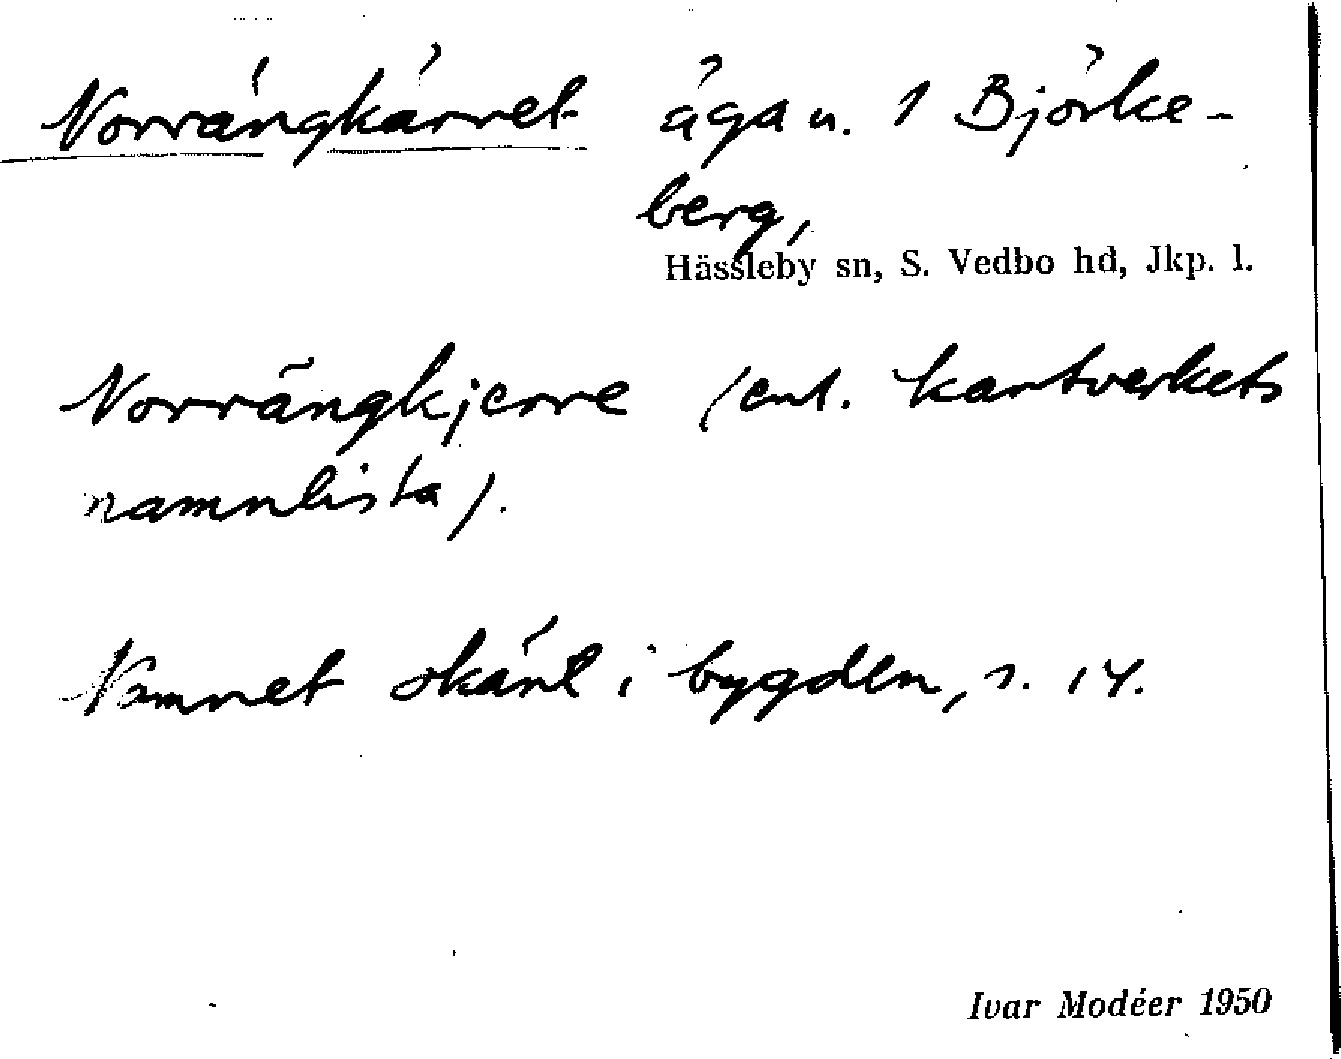 Norrängkärret äga u. 1 Björke-
berg,
Hässleby sn, S. Vedbo hd, Jkp. l.
Norrängkjerre (enl. kartverkets
namnlista).
Namnet okänt i bygden, s. 14.
Ivar Modéer 1950